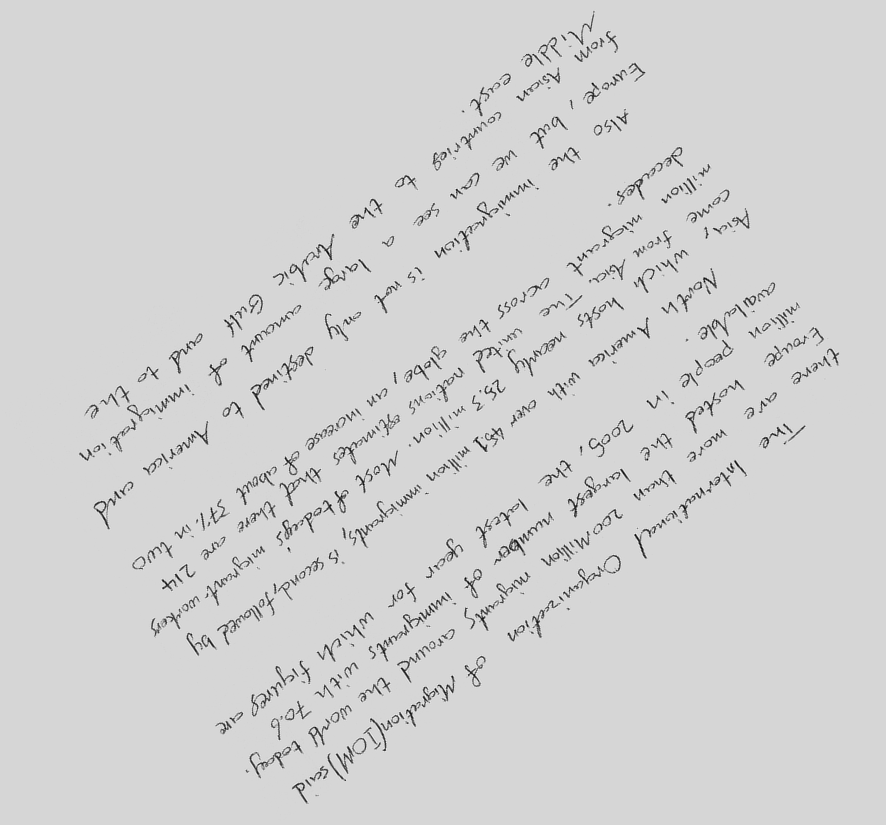 The International Organization of Migration(IOM)said
there are more than 200 Million migrants around the world today.
Eroupe hosted the largest number of immigrants with 70.6
million people in 2005, the latest year for which figures are
available.
North America with over 451 million immigrants, is second, followed by
Asia, which hosts nearly 25.3 million. Most of todays' migrant workers
come from Asia. The united nations estimates that there are 214
million migrant across the globe, an increase of about 37% in two
decades.
Also the immigration is not only destined to America and
Europe, but we can see a large amount of immigration
from Asian countries to the Arabic Gulf and to the
Middle east.